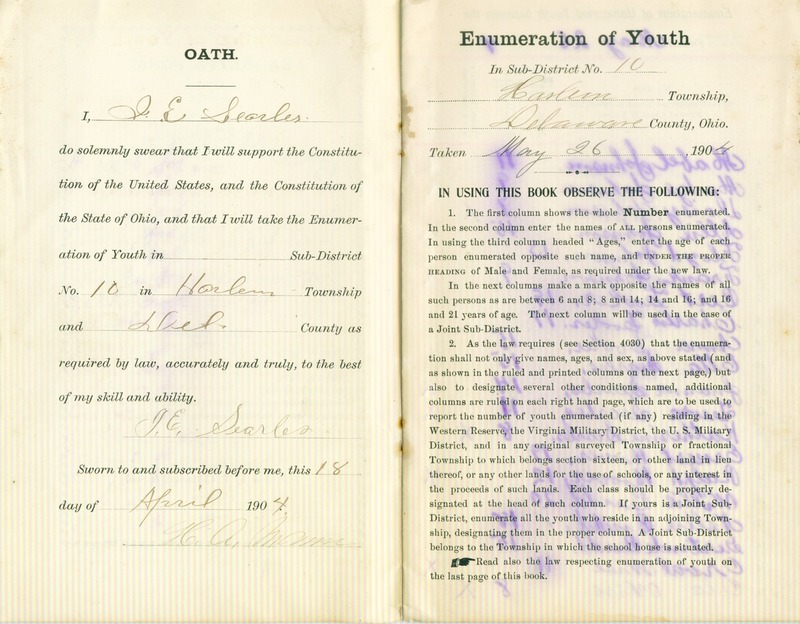 OATH.
I, J. E. Searles.
do solemnly swear that I will support the Constitu-
tion of the United States, and the Constitution of
the State of Ohio, and that I will take the Enumer-
ation of Youth in Sub-District
No. 10 in Harlem Township
and Del. County as
required by law, accurately and truly, to the best
of my skill and ability.
J. E. Searles
Sworn to and subscribed before me, this 18
day of April 1904
Enumeration of Youth
In Sub-District No. 10
Harlem Township,
Delaware County, Ohio.
Taken May 26, 1904
IN USING THIS BOOK OBSERVE THE FOLLOWING:
1. The first column shows the whole Number enumerated.
In the second column enter the names of ALL persons enumerated.
In using the third column headed "Ages," enter the age of each
person enumerated opposite such name, and UNDER THE PROPER
HEADING of Male and Female, as required under the new law.
In the next columns make a mark opposite the names of all
such persons as are between 6 and 8; 8 and 14; 14 and 16; and 16
and 21 years of age. The next column will be used in the case of
a Joint Sub-District.
2. As the law requires (see Section 4030) that the enumera-
tion shall not only give names, ages, and sex, as above stated (and
as shown in the ruled and printed columns on the next page,) but
also to designate several other conditions named, additional
columns are ruled on each right hand page, which are to be used to
report the number of youth enumerated (if any) residing in the
Western Reserve, the Virginia Military District, the U. S. Military
District, and in any original surveyed Township or fractional
Township to which belongs section sixteen, or other land in lien
thereof, or any other lands for the use of schools, or any interest in
the proceeds of such lands. Each class should be properly de-
signated at the head of such column. If yours is a Joint Sub-
District, enumerate all the youth who reside in an adjoining Town-
ship, designating them in the proper column. A Joint Sub-District
belongs to the Township in which the school house is situated.
Read also the law respecting enumeration of youth on
the last page of this book.